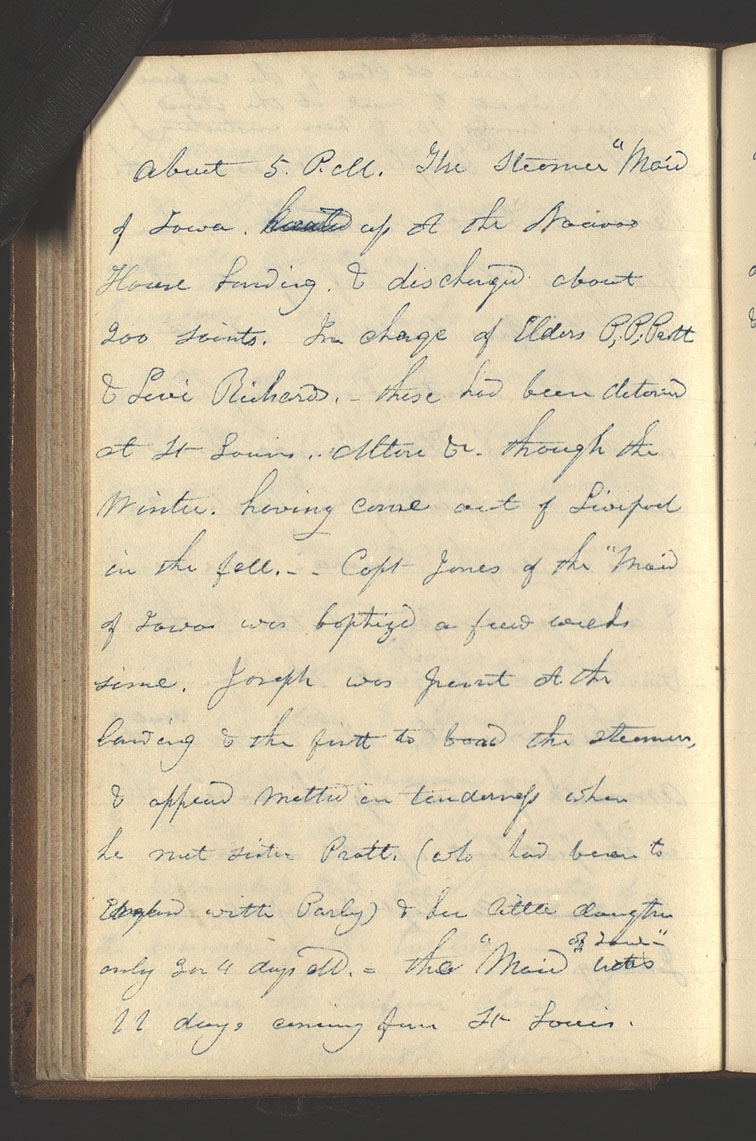 about 5. P.M. The steamer "Maid
of Iowa. hauled up at the Nauvoo
House landing. & discharged about
200 saints. In charge of Elders P.P. Pratt
& Levi Richards. - these had been detained
at St Louis.. Alton &c. through the
Winter. having come out of Liverpool
in the fall. - - Capt Jones of the "Maid
of Iowa was baptized a few weeks
since. Joseph was present at the
landing & the first to board the steamer,
& appeared melted in tenderness when
he met sister Pratt. (who had been to
England with Parley) & her little daughter
only 3 or 4 days old. = the "Maid of Iowa" was
11 days coming from St Louis.